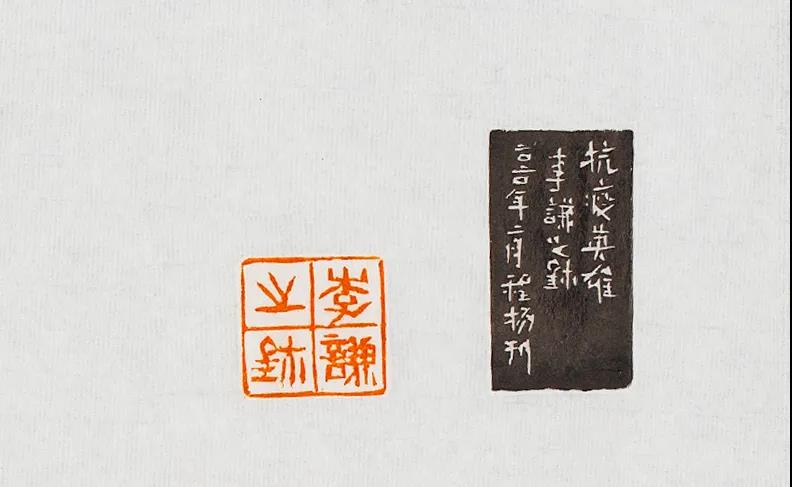 抗疫英雄
李謙之鉥
二〇二〇年二月程杨刊
李謙
之鉥